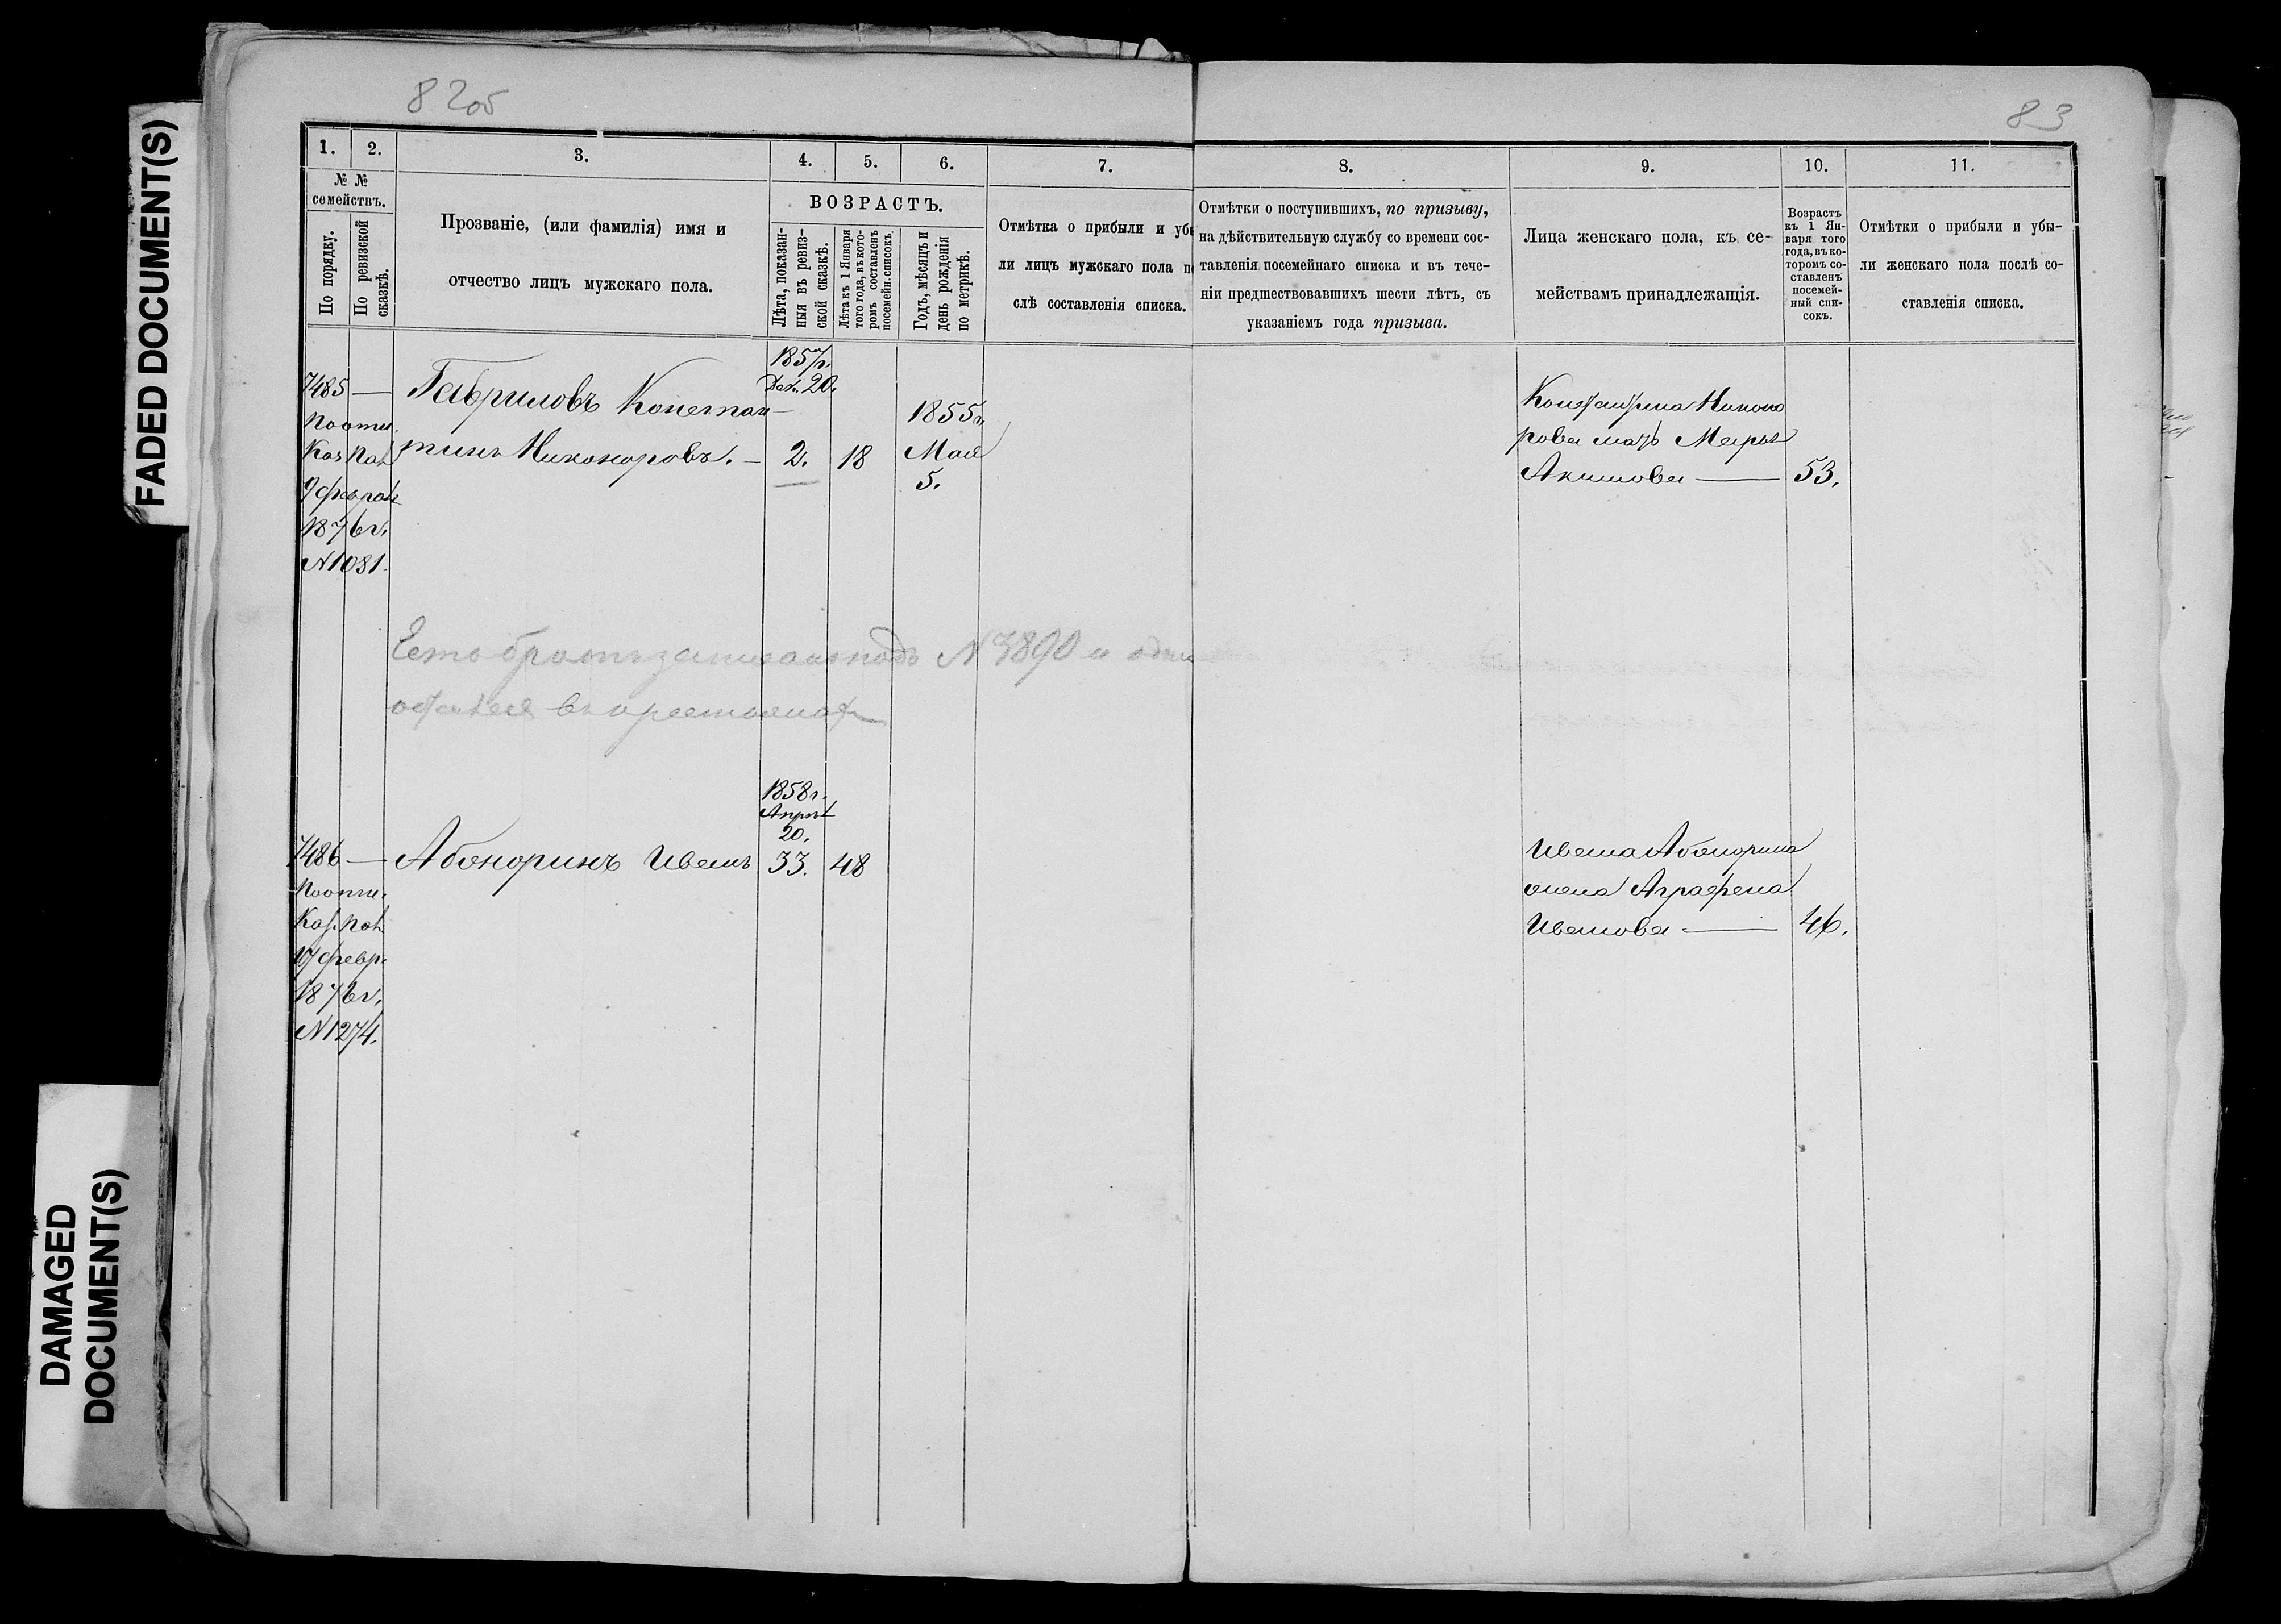 82об
83
FADED DOCUMENT(S)
DAMAGED
DOCUMENT(S)
1.
2.
3.
4.
5.
6.
7.
8.
9.
10.
11.
№ №
семействъ.
По порядку.
По ревизской
сказкѣ.
Прозваніе, (или фамилія) имя и
отчество лицъ мужскаго пола.
ВОЗРАСТЪ.
Лѣта, показан-
ныя въ ревиз-
ской сказкѣ.
Лѣта къ 1 Января
того года, въ кото-
ромъ составленъ
посемейн. списокъ.
Годъ, мѣсяцъ и
день рожденія
по метрикѣ.
Отмѣтка о прибыли и убы
ли лицъ мужскаго пола по
слѣ составленія списка.
Отмѣтки о поступившихъ, по призыву,
на дѣйствительную службу со времени сос-
тавленія посемейнаго списка и въ тече-
ніи предшествовавшихъ шести лѣтъ, съ
указаніемъ года призыва.
Лица женскаго пола, къ се-
мействамъ принадлежащія.
Возрастъ
къ 1 Ян-
варя того
года, въ ко-
торомъ со-
ставленъ
посемей-
ный спи-
сокъ.
Отмѣтки о прибыли и убы-
ли женскаго пола послѣ со-
ставленія списка.
1857г.
Дек. 20.
7485 — Гавриловъ Констан-
тинъ Никоноровъ. — 2. 18
1855г.
Мая
5.
По отн.
Каз. Пал.
9 феврал.
1876г.
N1081.
Константина Никоно
рова мать Марья
Акимова — 53.
Есть братъ записанъ подъ N 3890 и один
остался въ крестьянах
1858г.
Апрѣл
20.
7486 — Абоноринъ Иванъ 33. 48
По отн.
Каз. Пал.
17 февр.
1876г.
N1274.
Ивана Абонорина
жена Аграфена
Иванова — 46.